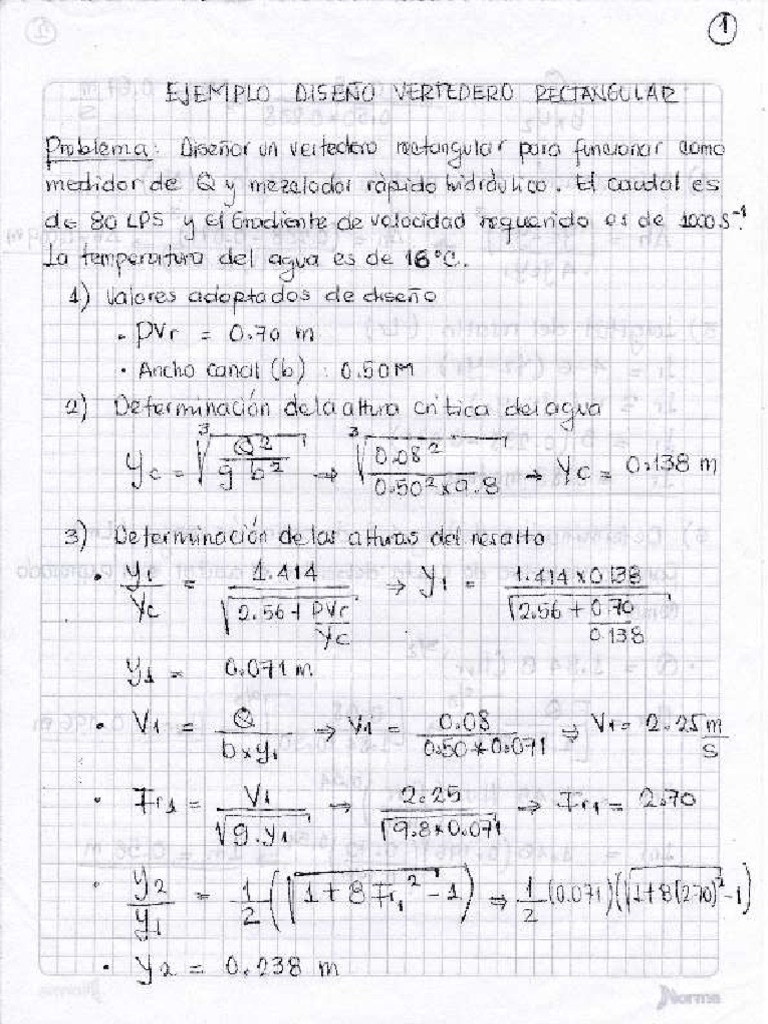 1
EJEMPLO DISEÑO VERTEDERO RECTANGULAR
Problema: Diseñar un vertedero rectangular para funcionar como
medidor de Q y mezclador rápido hidráulico. El caudal es
de 80 LPS y el Gradiente de velocidad requerido es de 1000 S⁻¹.
La temperatura del agua es de 16°C.
1) Valores adoptados de diseño
• PVr = 0.70 m
• Ancho canal (b) : 0.50 M
2) Determinación de la altura crítica del agua
Yc = ∛(Q²/(g b²)) → ∛(0.08²/(0.50² x 9.8)) → Yc = 0.138 m
3) Determinación de las alturas del resalto
• Y1/Yc = 1.414/√(2.56 + PVr/Yc) → Y1 = 1.414 x 0.138/√(2.56 + 0.70/0.138)
Y1 = 0.071 m
• V1 = Q/(b x y1) → V1 = 0.08/(0.50 x 0.071) ⇒ V1 = 2.25 m/s
• Fr1 = V1/√(g . y1) → 2.25/√(9.8 x 0.071) → Fr1 = 2.70
• y2/y1 = 1/2 (√(1 + 8 Fr1²) - 1) ⇒ 1/2 (0.071) (√(1 + 8(2.70)²) - 1)
• y2 = 0.238 m
Norma